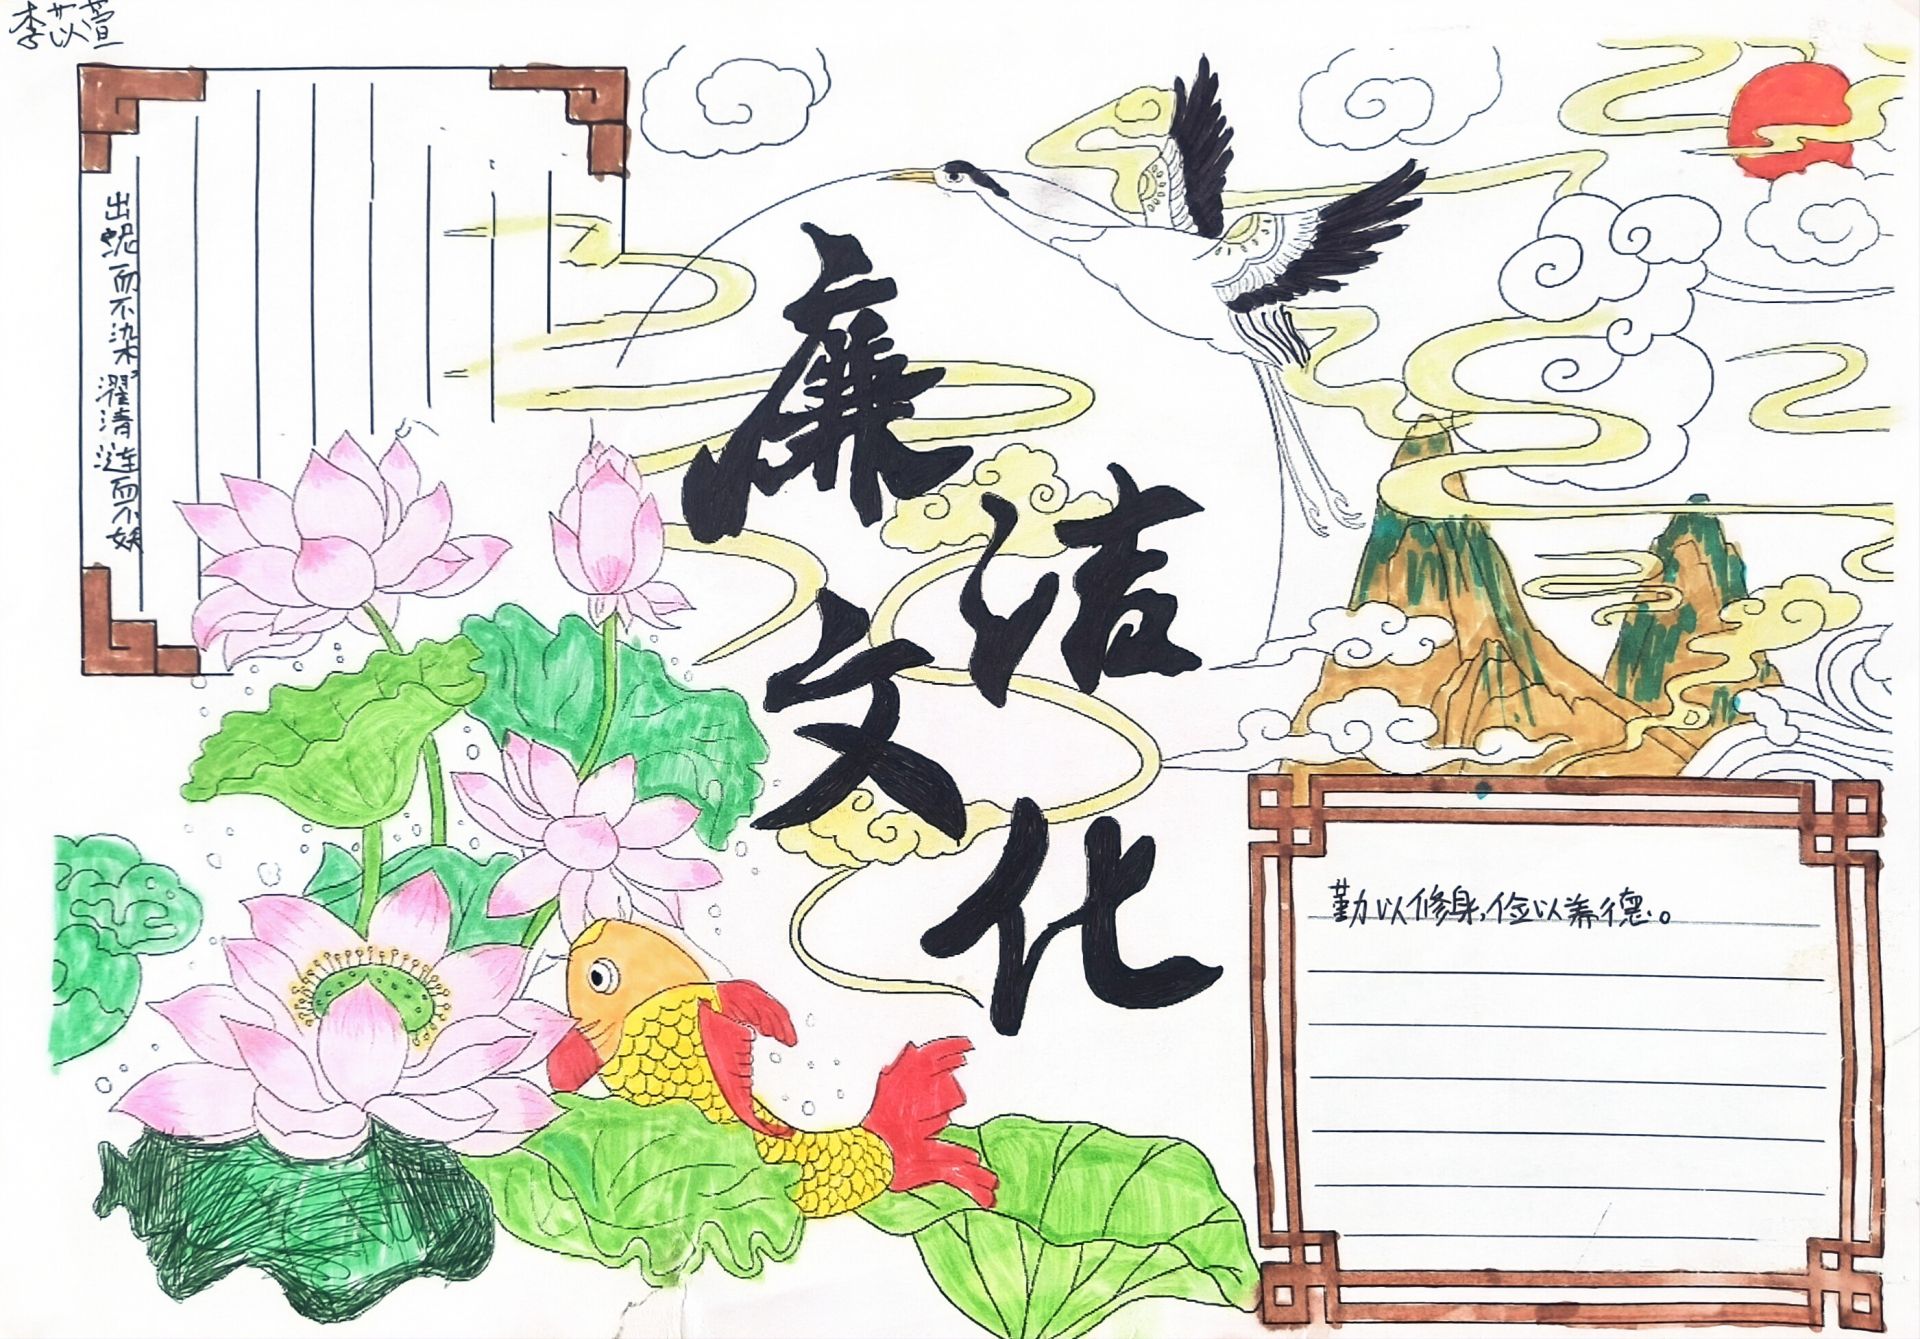 李苡萱
出泥而不染,濯清涟而不妖
廉洁文化
勤以修身,俭以养德。